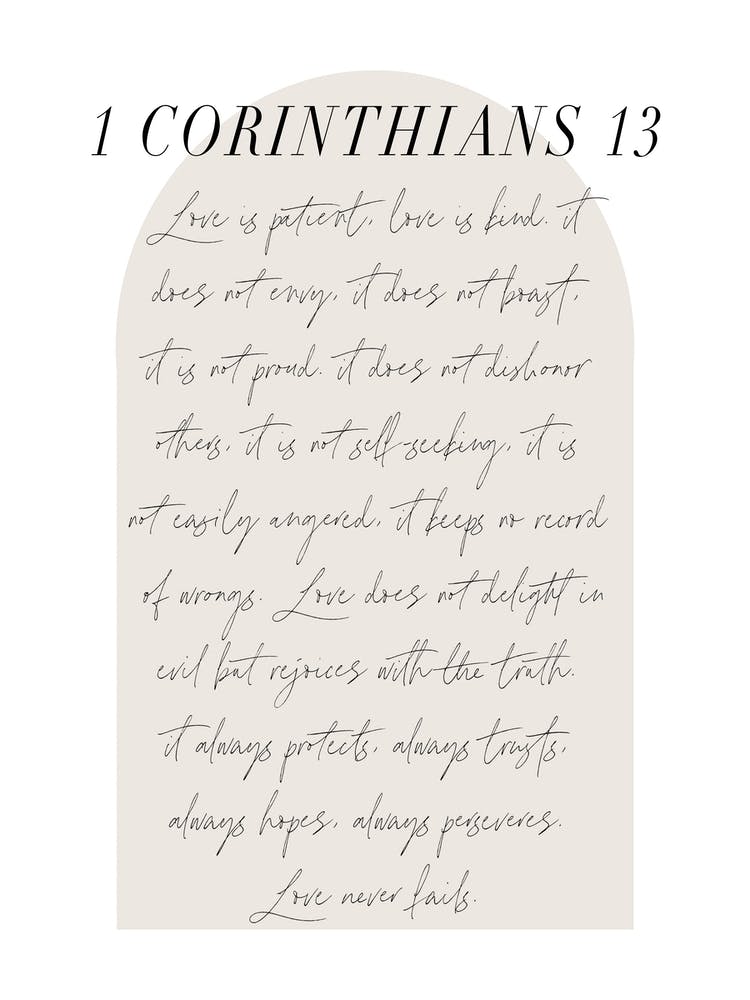 1 CORINTHIANS 13
Love is patient, love is kind. it
does not envy, it does not boast,
it is not proud. it does not dishonor
others, it is not self-seeking, it is
not easily angered, it keeps no record
of wrongs. Love does not delight in
evil but rejoices with the truth.
it always protects, always trusts,
always hopes, always perseveres.
Love never fails.